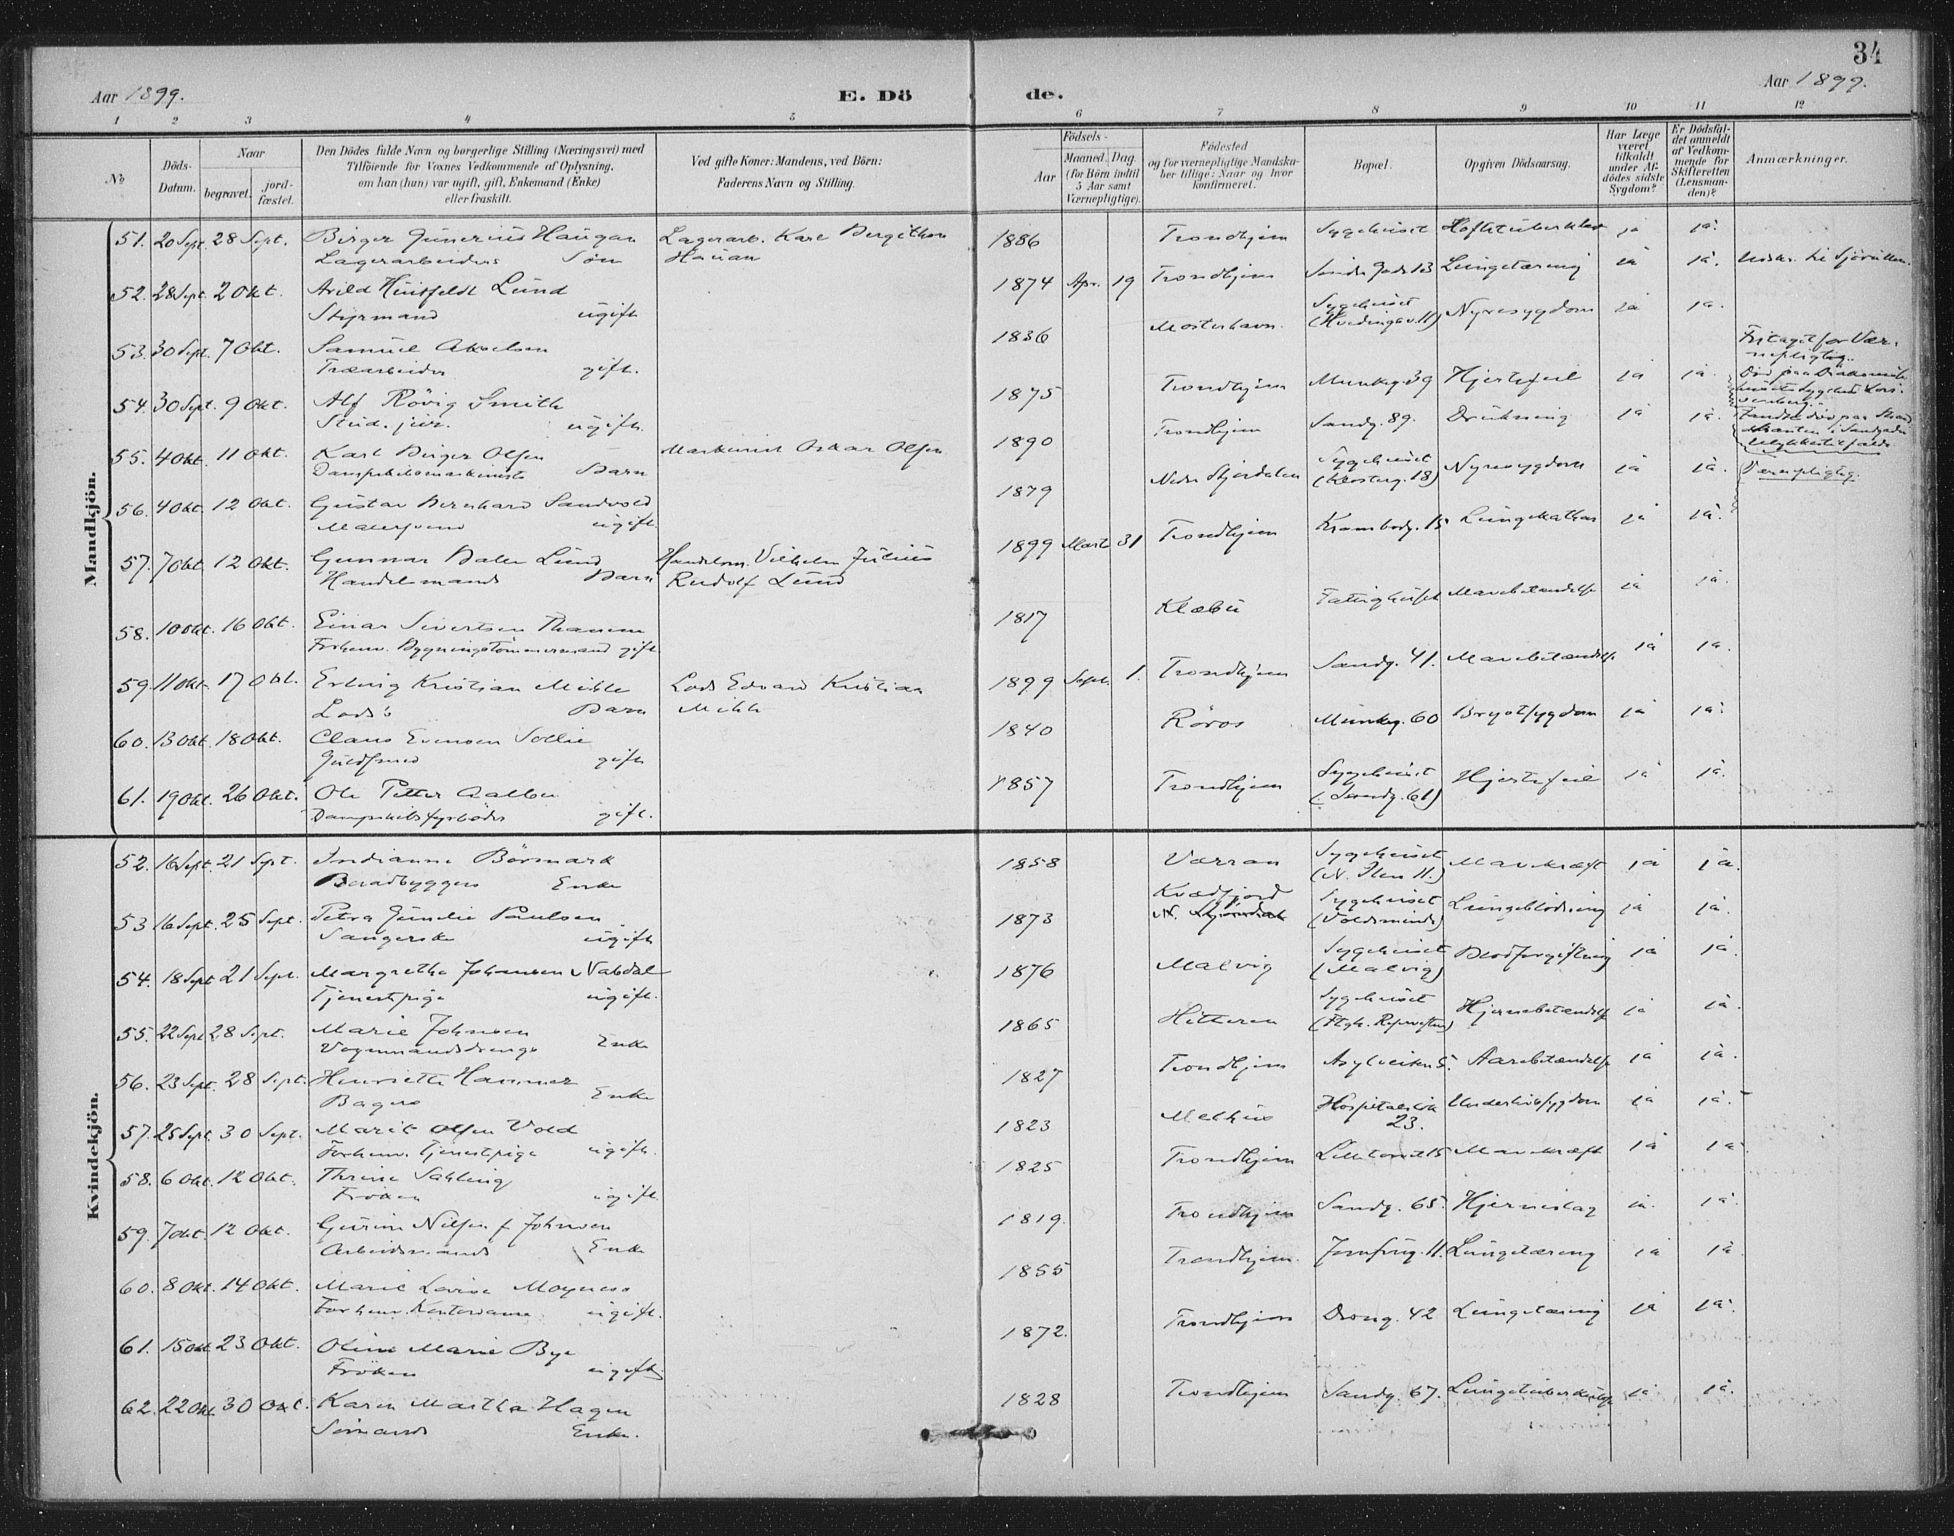 34
Aar 1899.
E. Dö
de.
Aar 1899.
1 2 3 4 5 6 7 8 9 10 11 12
No
Döds-
Datum.
Naar
begravet.
jord-
fæstet.
Den Dödes fulde Navn og borgerlige Stilling (Næringsvei) med
Tilföiende for Voxnes Vedkommende af Oplysning,
om han (hun) var ugift, gift, Enkemand (Enke)
eller fraskilt.
Ved gifte Koner: Mandens, ved Börn:
Faderens Navn og Stilling.
Födsels-
Aar
Maaned. Dag.
(for Börn indtil
5 Aar samt
Værnepligtige).
Födested
og for værnepligtige Mandska-
ber tillige: Naar og hvor
konfirmeret.
Bopæl.
Opgiven Dödsaarsag.
Har Læge
været
tilkaldt
under Af-
dödes sidste
Sygdom?
Er Dödsfal-
det anmeldt
af Vedkom-
mende for
Skifteretten
(Lensman-
den)?
Anmærkninger.
Mandkjön.
51. 20 Sept. 28 Sept. Birger Gunerius Haugan Lagerarb. Karl Bergithon 1886 Trondhjem Sygehuset ja ja.
Lagerarbeiders Søn Haugan
52. 28 Sept. 2 Okt. Arild Huitfeldt Lund 1874 Apr. 19 Trondhjem Lungetæring ja ja.
Styrmand ugift
53. 30 Sept. 7 Okt. Samuel Akselsen 1836 Mosterhavn. Sygehuset Nyresygdom ja ja.
Træarbeider gift.
54. 30 Sept. 9 Okt. Alf Røvig Smith 1875 Trondhjem Munkg. 39 Hjertefeil ja ja. Fritaget for Vær-
nepligtig.
Stud. jur. ugift.
55. 4 Okt. 11 Okt. Karl Birger Olsen Maskinist Oskar Olsen 1890 Trondhjem Sandg. 89. Drukning ja ja.
Dampskibsmaskinists Barn
56. 4 Okt. 12 Okt. Gustav Bernhard Sandvold 1879 Nedre Stjørdalen Sygehuset (Klosterg. 18) Nyresygdom ja ja. Værnepligtig.
Malersvend ugift.
57. 7 Okt. 12 Okt. Gunnar Dahl Lund Handelsm. Vilhelm Julius 1899 Marts 31 Trondhjem Krambodg. 15 Lungekathar ja ja.
Handelsmands Barn Rudolf Lund
58. 10 Okt. 16 Okt. Einar Sivertsen Thanem 1817 Klæbu Fattighuset Mavebetændelse ja ja.
Forhenv. Bygningstømmermand gift
59. 11 Okt. 17 Okt. Erling Kristian Mikle Lods Edvard Kristian 1899 Septr. 1. Trondhjem Sandg. 41. Mavebetændelse ja ja.
Lods's Barn
60. 13 Okt. 18 Okt. Claus Evensen Sollie 1840 Røros Munkg. 60 Brystsygdom ja ja.
Guldsmed gift
61. 19 Okt. 26 Okt. Ole Petter Aalbu 1857 Trondhjem Sygehuset (Sandg. 61) Hjertefeil ja ja.
Dampskibsfyrbøder gift.
Kvindekjön.
52. 16 Sept. 21 Sept. Indianne Börmark 1858 Værran Sygehuset (N. Ilen 11.) Mavekræft ja ja.
Baadbyggers Enke
53 16 Sept. 25 Sept. Petra Gundie Paulsen 1873 Kvædfjord Sygehuset (Voldsminde) Lungeblödning ja ja.
Sangerske ugift
54. 18 Sept 21 Sept. Margrethe Johansen Nabdal 1876 Malvig Sygehuset (Malvig) Blodforgiftning ja ja.
Tjenestpige ugift.
55. 22 Sept 28 Sept. Marie Johnsen 1865 Hitteren Sygehuset Hjernebetændelse ja ja.
Vognmandsdrengs Enke
56. 23 Sept. 28 Sept. Henriette Hammer 1827 Trondhjem Asylveiten 5. Aarebetændelse ja ja.
Bagers Enke
57. 25 Sept. 30 Sept. Marit Olsen Vold 1823 Melhus 23. Underlivssygdom ja ja.
Forhenv. Tjenestpige ugift.
58. 6 Okt. 12 Okt. Thrine Sahling 1825 Trondhjem Mavekræft ja ja
Frøken ugift.
59. 7 Okt. 12 Okt. Gurine Nilsen f. Johnsen 1819. Trondhjem Sandg. 65. Hjerneslag ja. ja
Arbeidsmands Enke
60. 8 Okt. 14 Okt. Marie Lovise 1855 Trondhjem. Jomfrug. 11. Lungetæring ja ja
Forhenv. Kontordame ugift.
61. 15 Okt 23 Okt. Oline Marie Bye 1872. Trondhjem Drong. 42 Lungetæring ja ja.
Frøken ugift
62. 22 Okt. 30 Okt. Karen Martha Hagen 1828 Trondhjem Sandg. 67. Lungetuberkulose ja ja.
Sømands Enke.